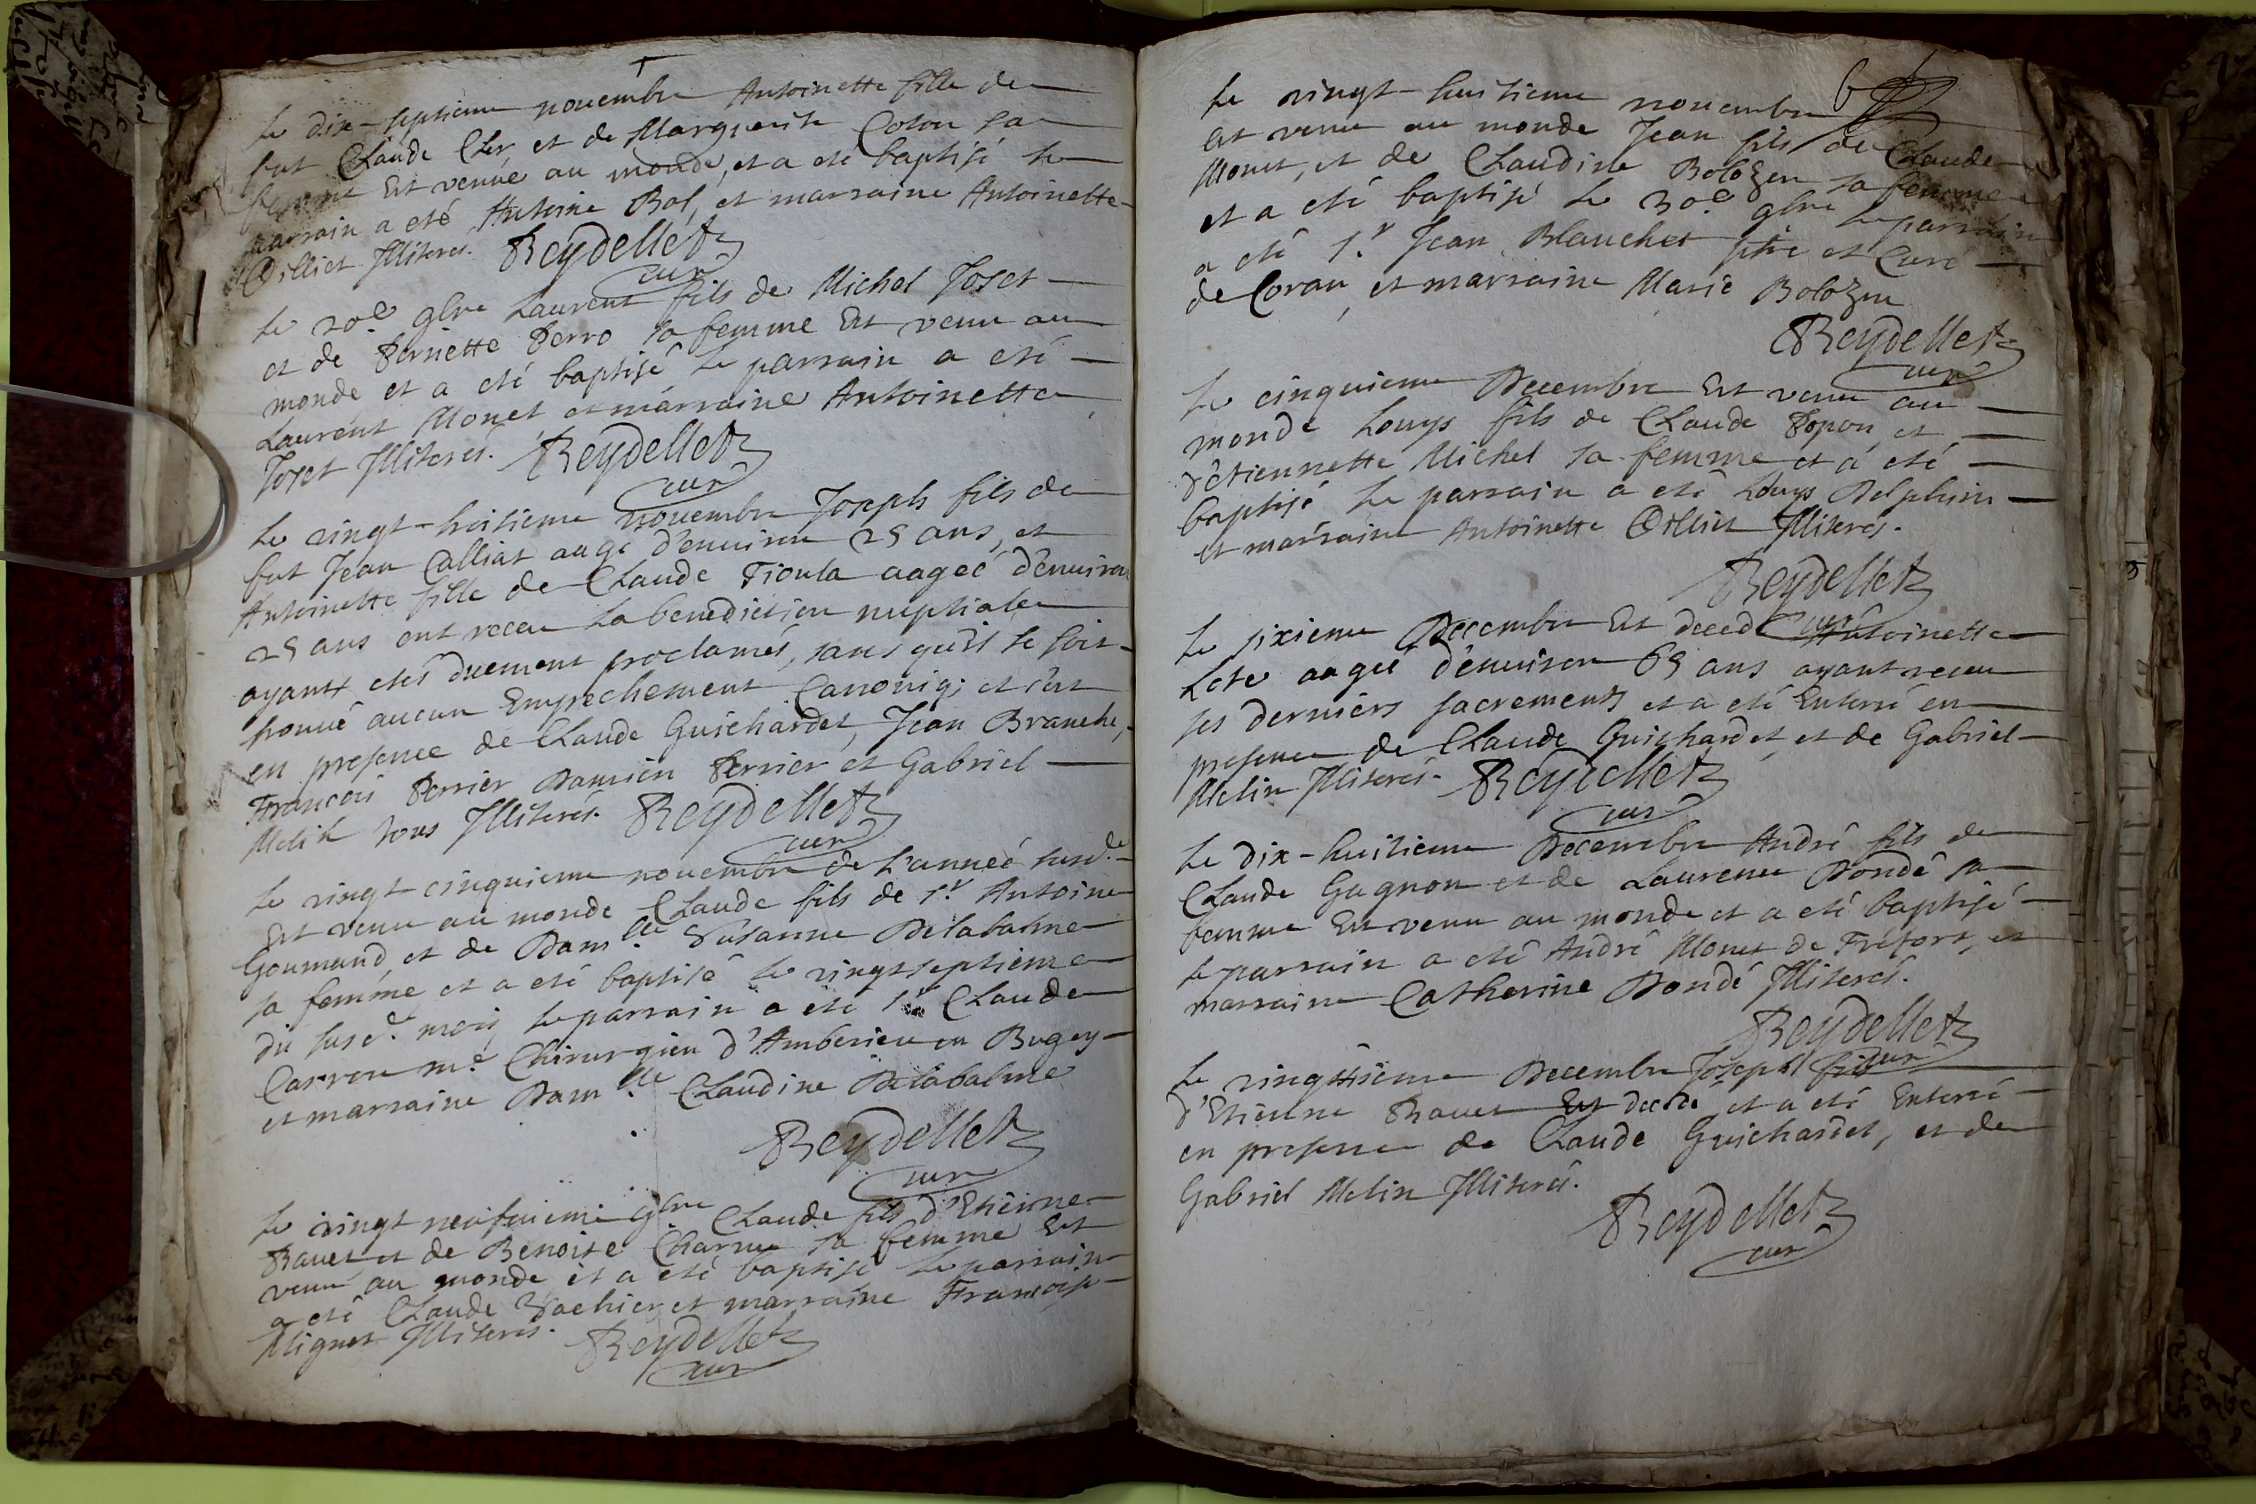 Le dix-septieme novembre Antoinette fille de
fut Claude Cler et de Marguerite Coton sa
femme est venüe au monde, et a eté baptisé le
parrain a eté Antoine Bal, et marraine Antoinette
Oilliet Illiterés. Reydellet
curé
Le 20e 9bre Laurent fils de Michel Joset
et de Pernette Perro sa femme Est venu au
monde et a eté baptisé Le parrain a eté
Laurent Monet, et marraine Antoinette
Joset Illiterés. Reydellet
curé
Le vingt-huitieme novembre Joseph fils de
fut Jean Calliat aagé d'environ 25 ans, et
Antoinette fille de Claude Tioula aageé d'environ
25 ans ont receu La benediction nuptiale
ayants etés duement proclamés, sans qu'il se soit
trouvé aucun Empechement Canoniq; et c'est
en presence de Claude Guichardet, Jean Branche,
François Perrier Damien Perrier et Gabriel
Melin tous Illiterés. Reydellet
curé
Le vingt cinquieme novembre de L'anneé susd.e
Est venu au monde Claude fils de s.r Antoine
Goumand, et de Dam.lle Susanne Delabalme
sa femme et a eté baptisé Le vingtseptieme
du susd.t mois Le parrain a eté s.r Claude
Carron m.e Chirurgien d'Amberieu en Bugey
et marraine Dam.lle Claudine Delabalme
Reydellet
curé
Le vingt neufvieme 9bre Claude fils d'Etienne
Ravet et de Benoite Charnu sa femme Est
venu au monde et a eté baptisé Le parrain
a eté Claude Vachier et marraine Françoise
Mignet Illiterés. Reydellet
curé
6
Le vingt-huitieme novembre
est venu au monde Jean fils de Claude
Monet, et de Claudine Bolozon sa femme
et a eté baptisé Le 30e 9bre Le parrain
a eté s.r Jean Blanchet ptre et Curé
de Coran, et marraine Marie Bolozon
Reydellet
curé
Le cinquieme Decembre Est venu au
monde Louys fils de Claude Popon et
d'Etiennette Michel sa femme et a eté
baptisé Le parrain a eté Louys Delphin
et marraine Antoinette Oilliet Illiterés.
Reydellet
curé
Le sixieme Decembre Est decedé Antoinette
aageé d'environ 65 ans ayant receu
ses derniers sacrements et a eté Enterré en
presence de Claude Guichardet, et de Gabriel
Melin Illiterés. Reydellet
curé
Le dix-huitieme Decembre André fils de
Claude Gagnon et de Laurence Dondé sa
femme Est venu au monde et a eté baptisé
Le parrain a eté André Monet de Trefort, et
marraine Catherine Dondé Illiterés.
Reydellet
curé
Le vingttieme Decembre Joseph fils
d'Etienne Ravet Est decedé et a eté Enterré
en presence de Claude Guichardet, et de
Gabriel Melin Illiterés.
Reydellet
curé